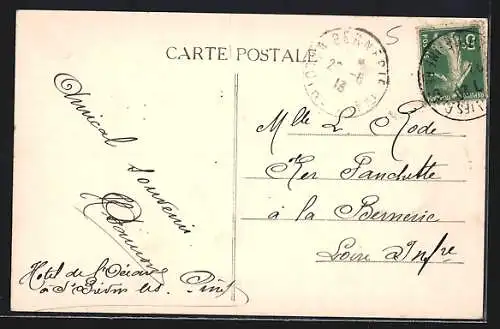 CARTE POSTALE
5
LA BERNERIE
2 - 6
13
Amical souvenir
Hotel de l'Océan
à St Brévin les Pins
Mlle L. Rode
Ker Fanchette
à la Bernerie
Loire Infre